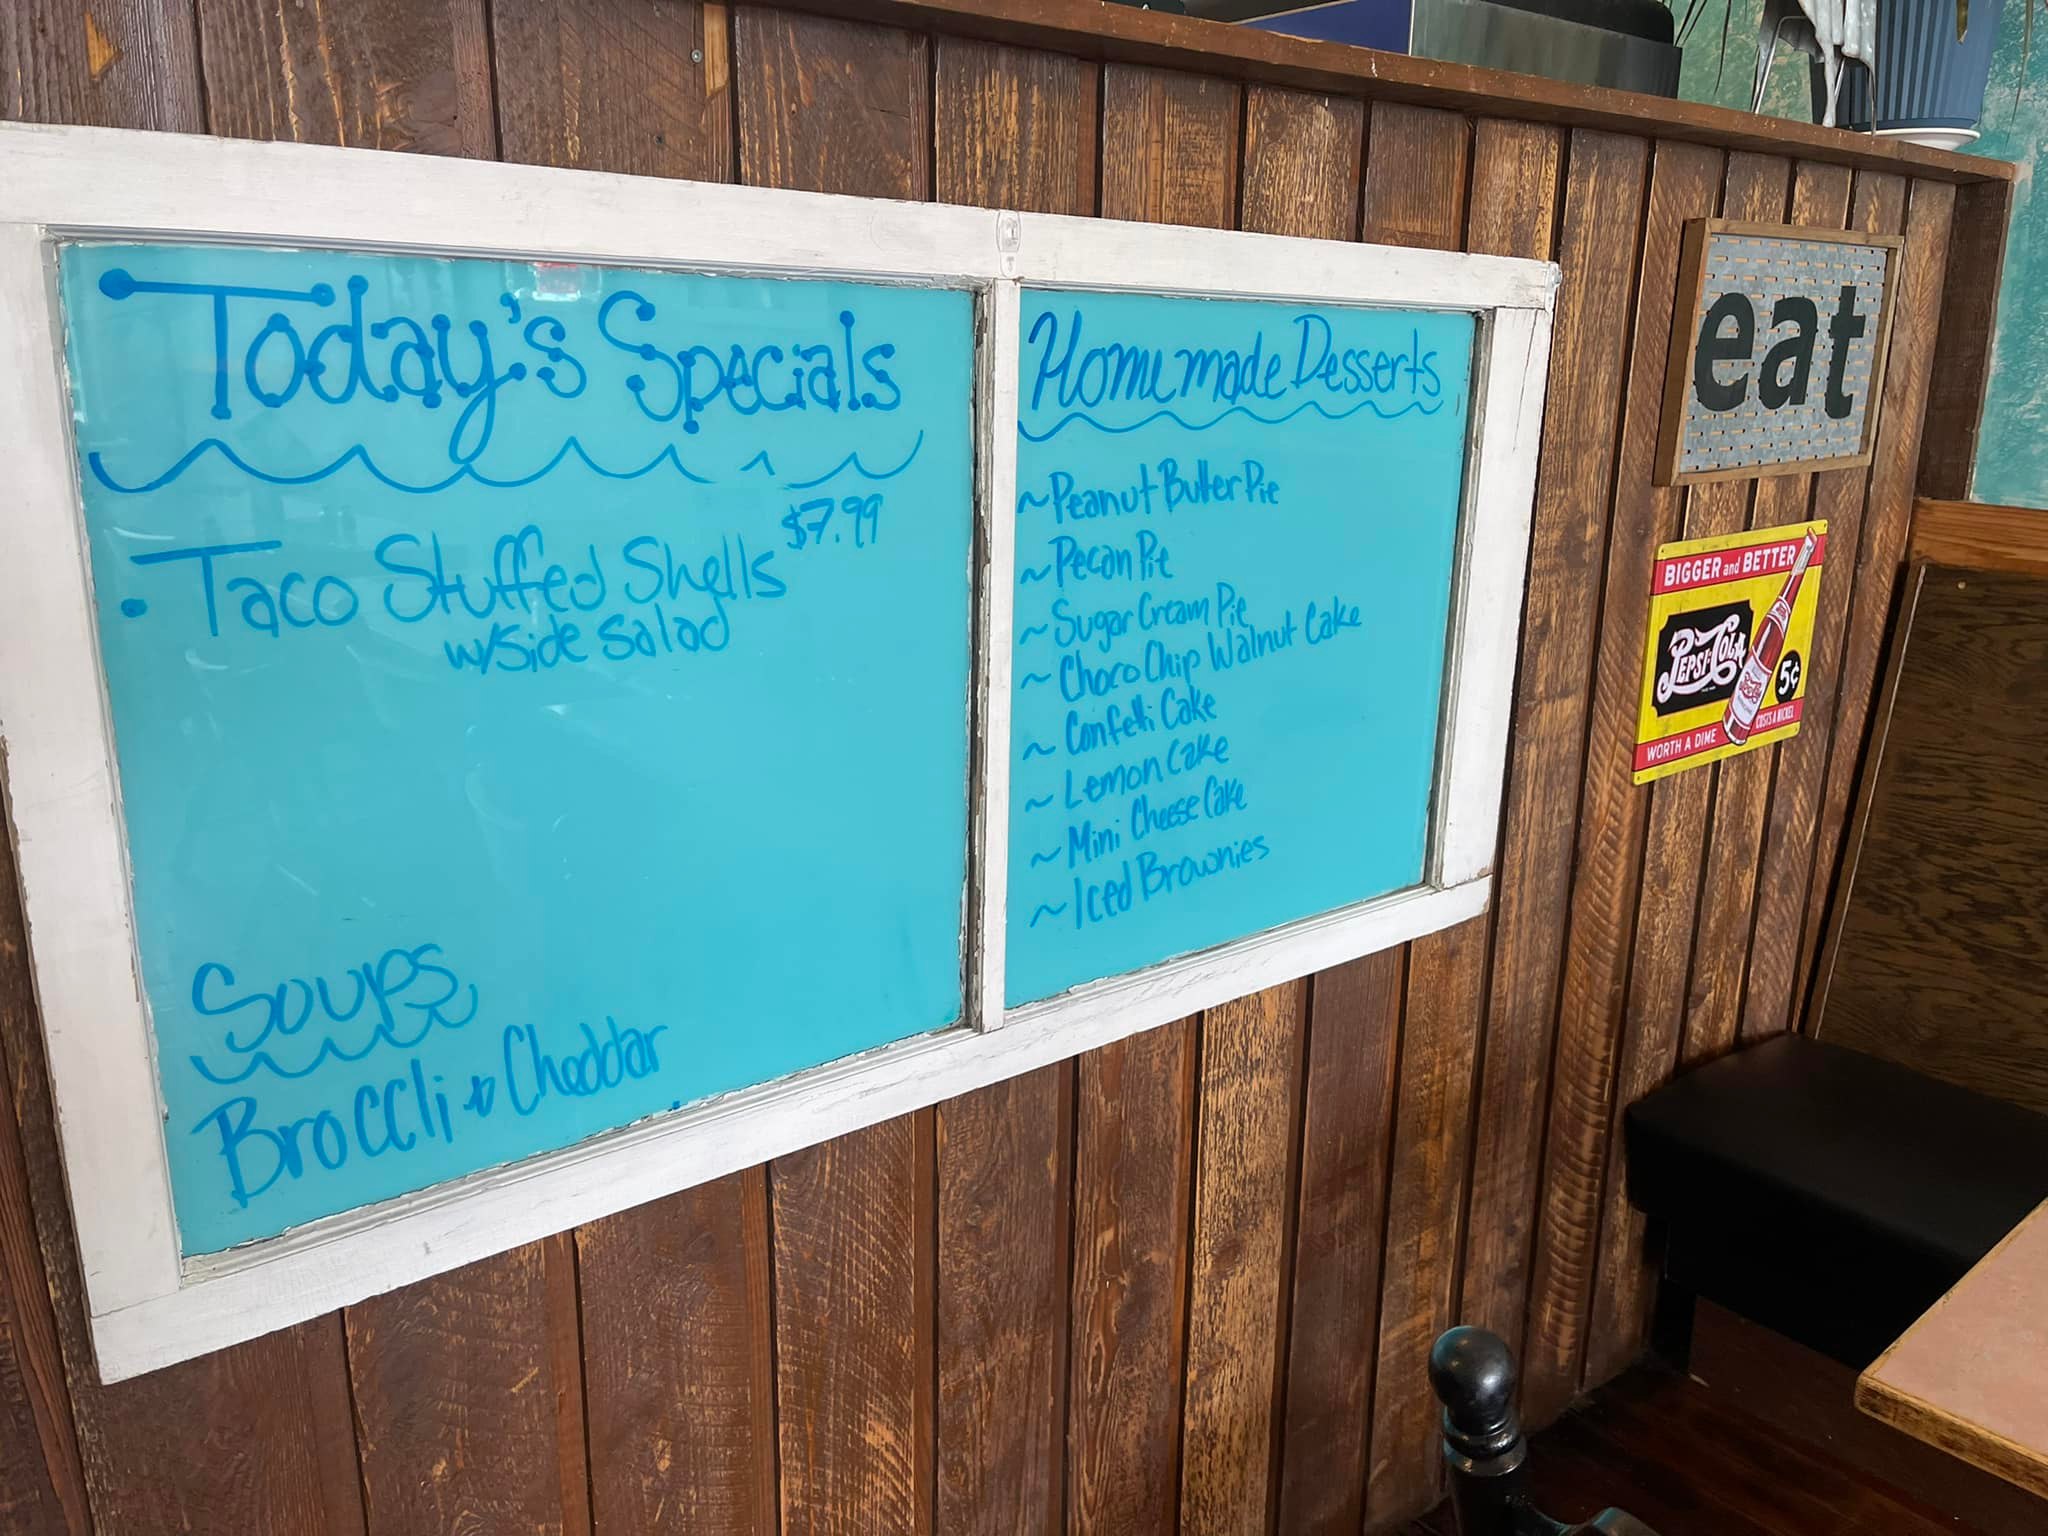 Today's Specials
• Taco Stuffed Shells $7.99
w/side salad
Soups
Broccli & Cheddar
Homemade Desserts
~ Peanut Butter Pie
~ Pecan Pie
~ Sugar Cream Pie
~ Choco Chip Walnut Cake
~ Confetti Cake
~ Lemon Cake
~ Mini Cheese Cake
~ Iced Brownies
eat
BIGGER and BETTER
PEPSI-COLA
5¢
COSTS A NICKEL
WORTH A DIME